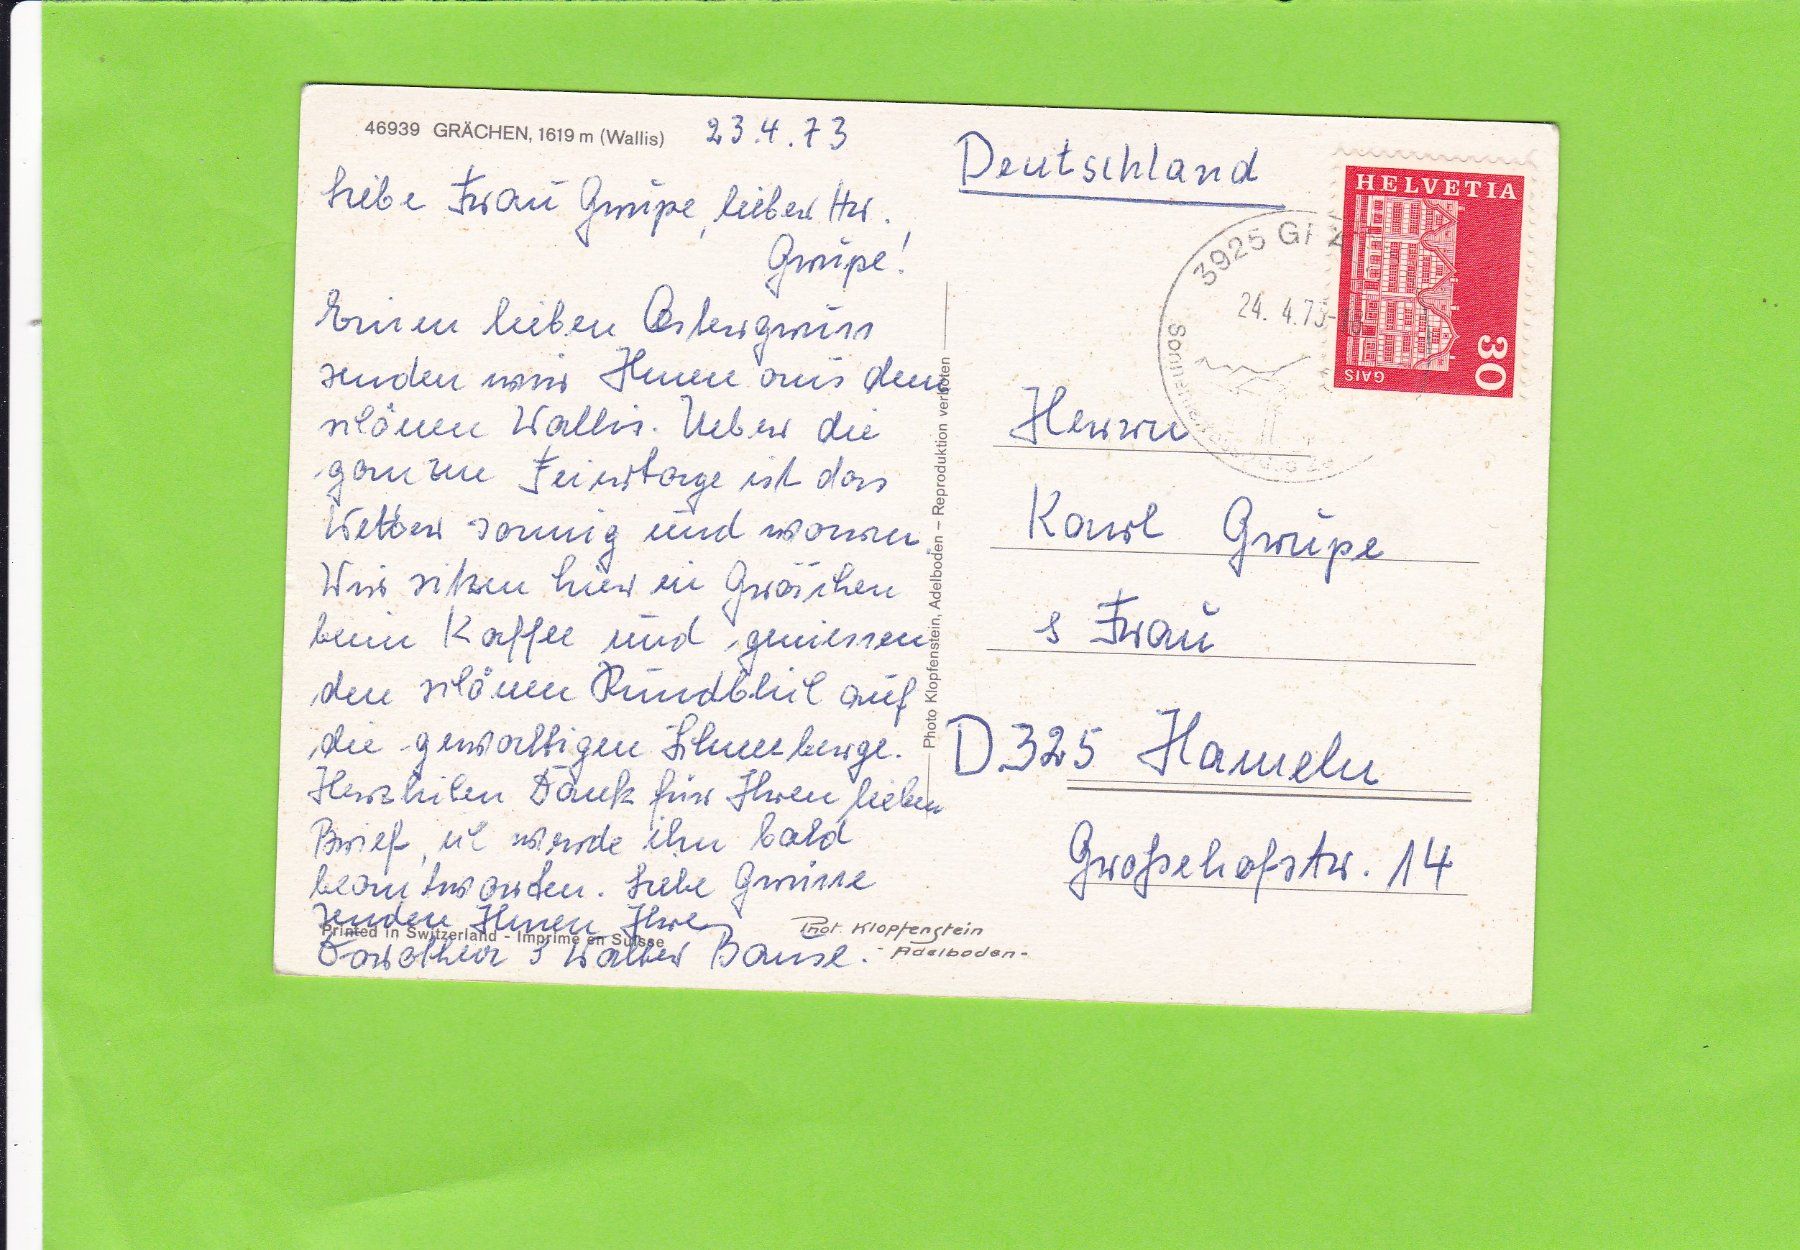 46939 GRÄCHEN, 1619 m (Wallis)
23.4.73
Liebe Frau Grupe, lieber Hr.
Grupe!
Einen lieben Ostergruss
senden wir Ihnen aus dem
schönen Wallis. Ueber die
ganzen Feiertage ist das
Wetter sonnig und warm.
Wir sitzen hier in Grächen
beim Kaffee und geniessen
den schönen Rundblick auf
die gewaltigen Schneeberge.
Herzlichen Dank für Ihren lieben
Brief, ich werde ihn bald
beantworten. Liebe Grüsse
senden Ihnen Ihre
Dorothea & Walter Banse.
Printed in Switzerland - Imprimé en Suisse
Phot. Klopfenstein
- Adelboden -
Photo Klopfenstein, Adelboden – Reproduktion verboten
Deutschland
HELVETIA
30
GAIS
3925
24. 4.73-
Herrn
Karl Grupe
& Frau
D.325 Hameln
Großehofstr. 14